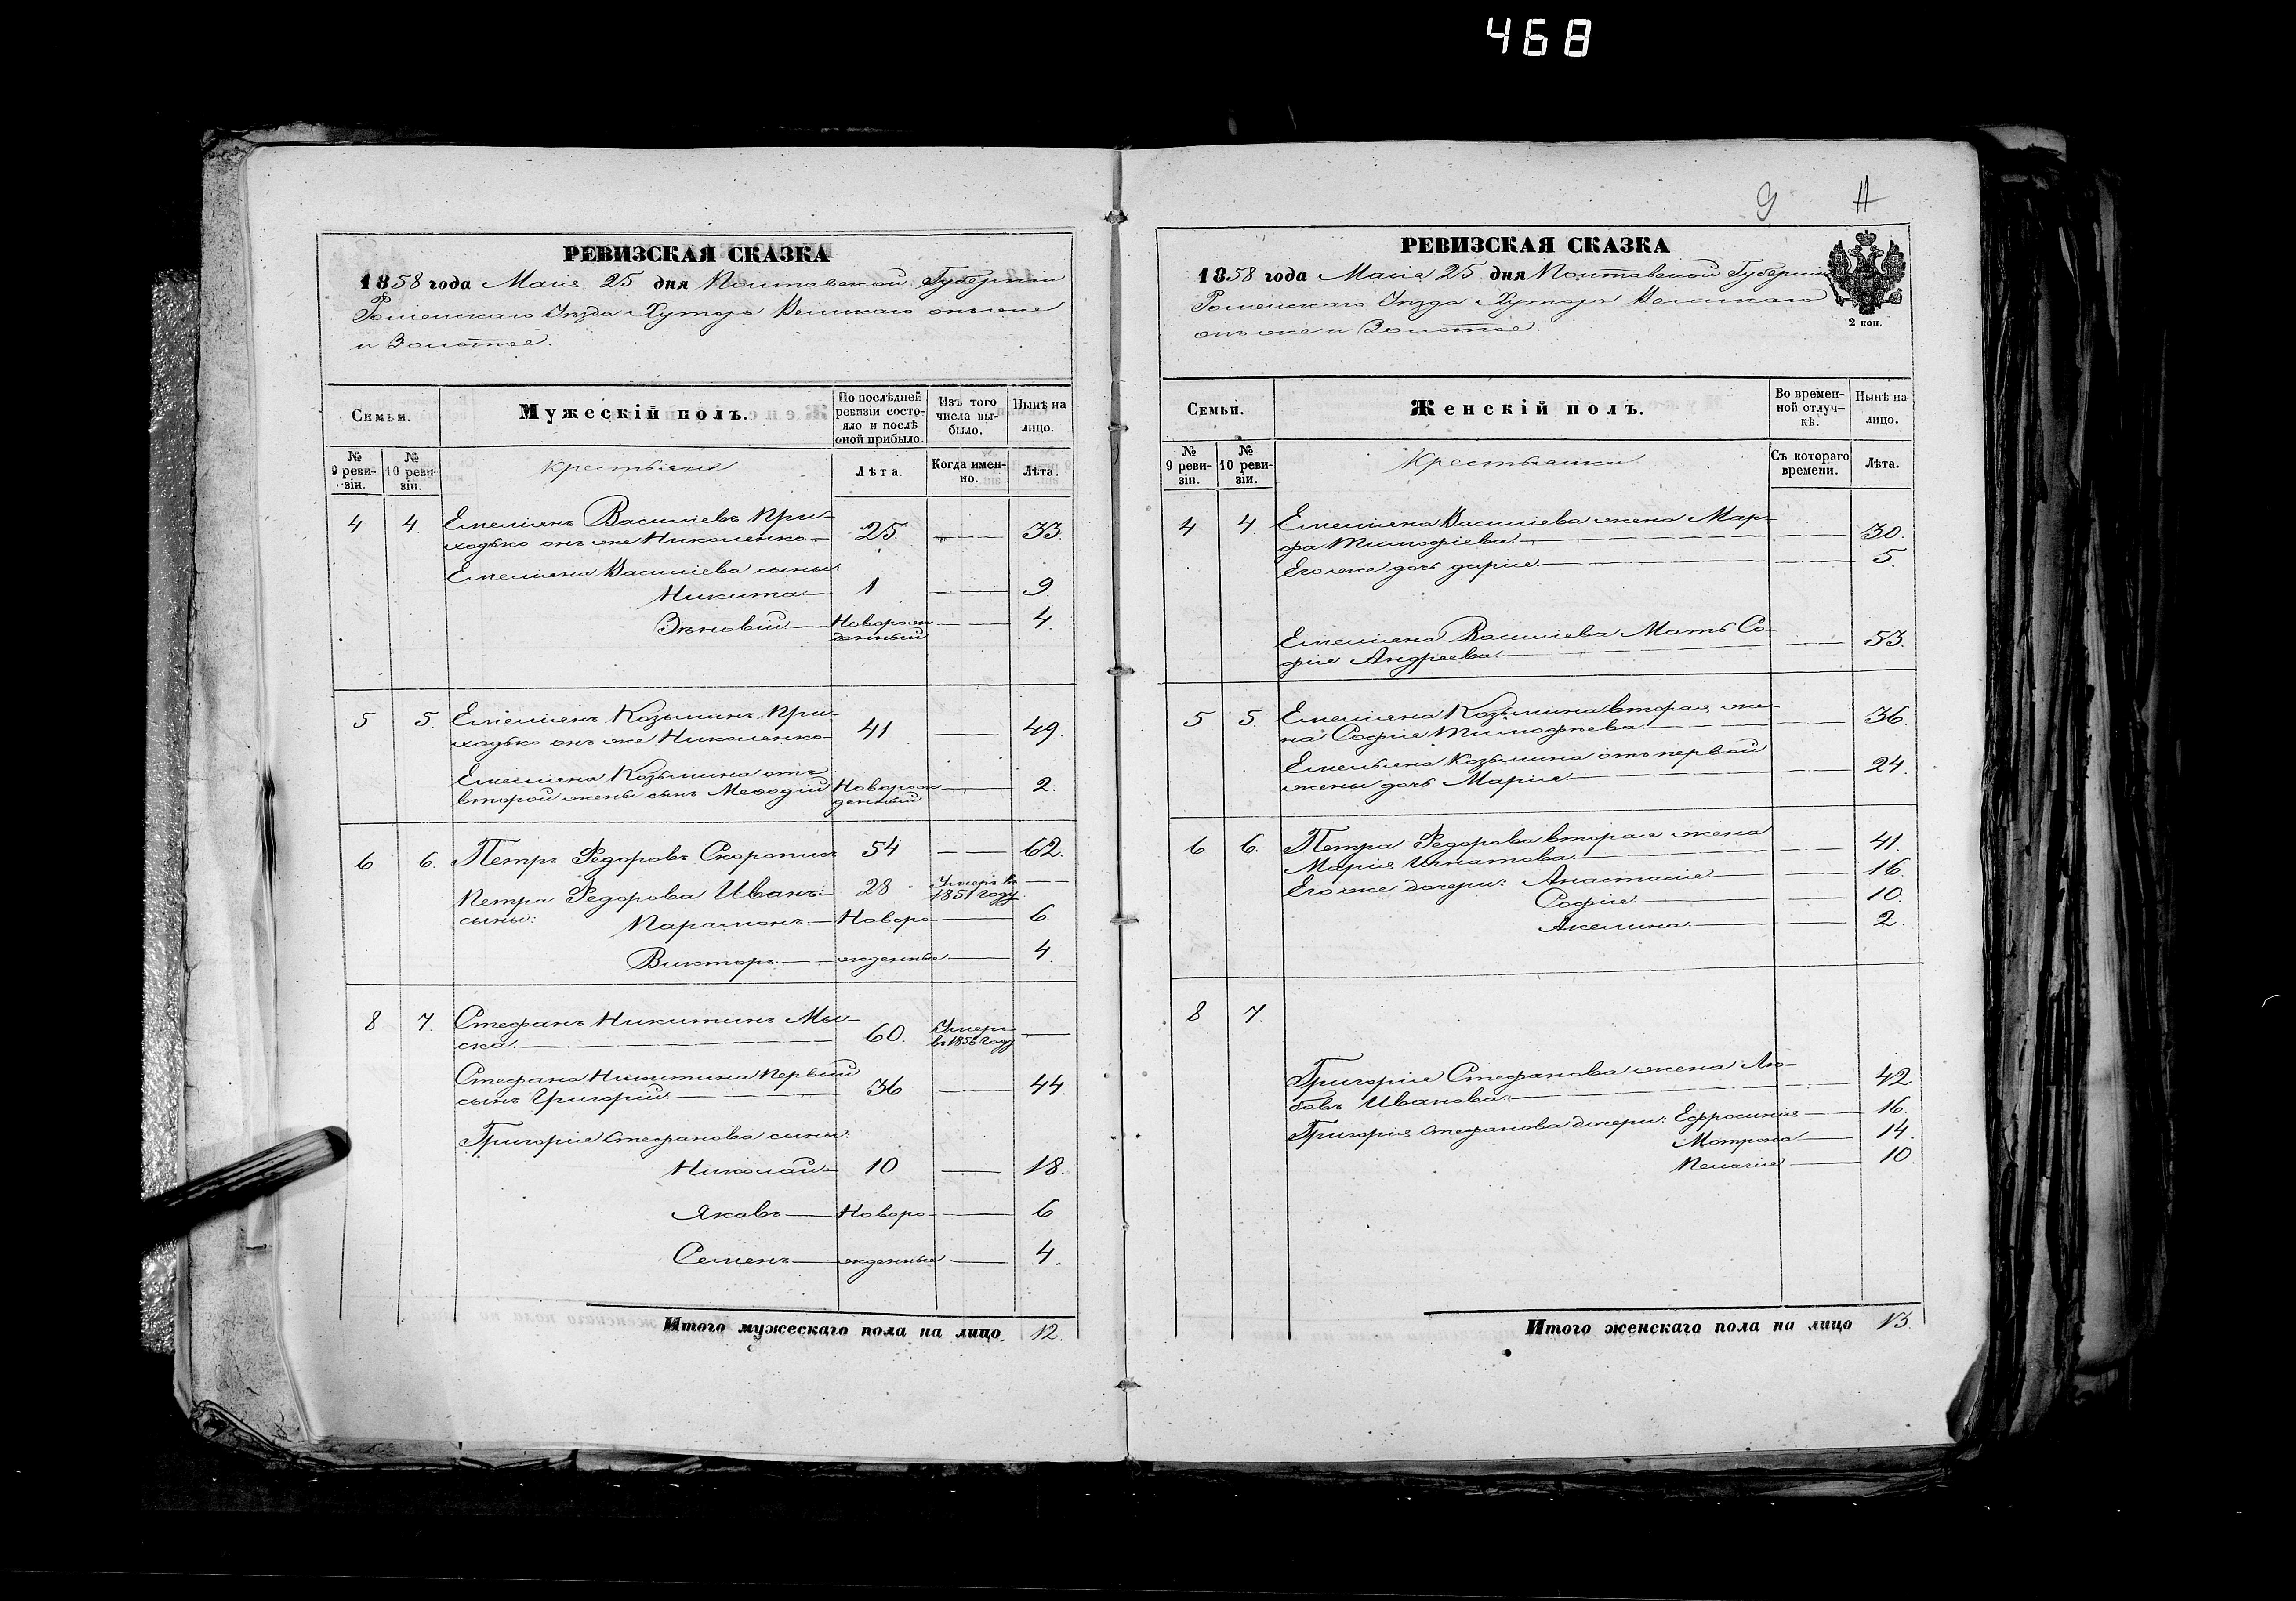 468
РЕВИЗСКАЯ СКАЗКА
1858 года Маія 25 дня Полтавской Губерніи
Роменскаго Уѣзда Хутора Великаго онъ же
и Золотое.
Семьи.
Мужескій полъ.
По послѣдней ревизіи состояло и послѣ оной прибыло.
Изъ того числа выбыло.
Нынѣ на лицо.
№ 9 ревизіи.
№ 10 ревизіи.
Крестьяне
Лѣта.
Когда именно.
Лѣта.
4 4. Емеліянъ Василіевъ При-
ходько онъ же Николенко — 25. — 33.
Емеліяна Василіева сыны:
Никита — 1 — 9.
Зѣновій — Новорож- — 4.
денный
5 5. Емеліянъ Козьминъ При-
ходько онъ же Николенко 41 — 49.
Емеліяна Козьмина отъ
второй жены сынъ Меѳодій Новорож- — 2.
денный
6 6. Петръ Ѳедоровъ Скоропис 54 — 62.
Петра Ѳедорова Иванъ — 28 Умеръ въ —
1851 году
сыны: Парамонъ — Новоро- — 6
Викторъ — жденные — 4.
8 7. Стефанъ Никитинъ Мы-
ска — 60. Умеръ —
въ 1856 году
Стефана Никитина первый
сынъ Григорій — 36 — 44.
Григорія Стефанова сыны:
Николай — 10 — 18.
Яковъ — Новоро- — 6
Семенъ — жденные — 4.
Итого мужескаго пола на лицо, 12.
9 11
РЕВИЗСКАЯ СКАЗКА
1858 года Маія 25 дня Полтавской Губерніи
Роменскаго Уѣзда Хутора Великаго
онъ же и Золотое.
2 коп.
Семьи.
Женскій полъ.
Во временной отлучкѣ.
Нынѣ на лицо.
№ 9 ревизіи.
№ 10 ревизіи.
Крестьянки
Съ котораго времени.
Лѣта.
4 4. Емеліяна Василіева жена Мар-
фа Тимофіева — 30.
Его же дочь Дарія — 5.
Емеліяна Василіева Мать Со-
фія Андреева — 53.
5 5. Емеліяна Козьмина вторая же-
на Софія Тимофѣева — 36.
Емельяна Козьмина отъ первой
жены дочь Марія — 24.
6 6. Петра Ѳедорова вторая жена
Марія Игнатова — 41.
Его же дочери: Анастасія — 16.
Софія — 10.
Акелина — 2.
8 7.
Григорія Стефанова жена Лю-
бовь Иванова — 42
Григорія Стефанова дочери: Ефросинія — 16.
Мотрона — 14.
Пелагія — 10.
Итого женскаго пола на лицо 13.